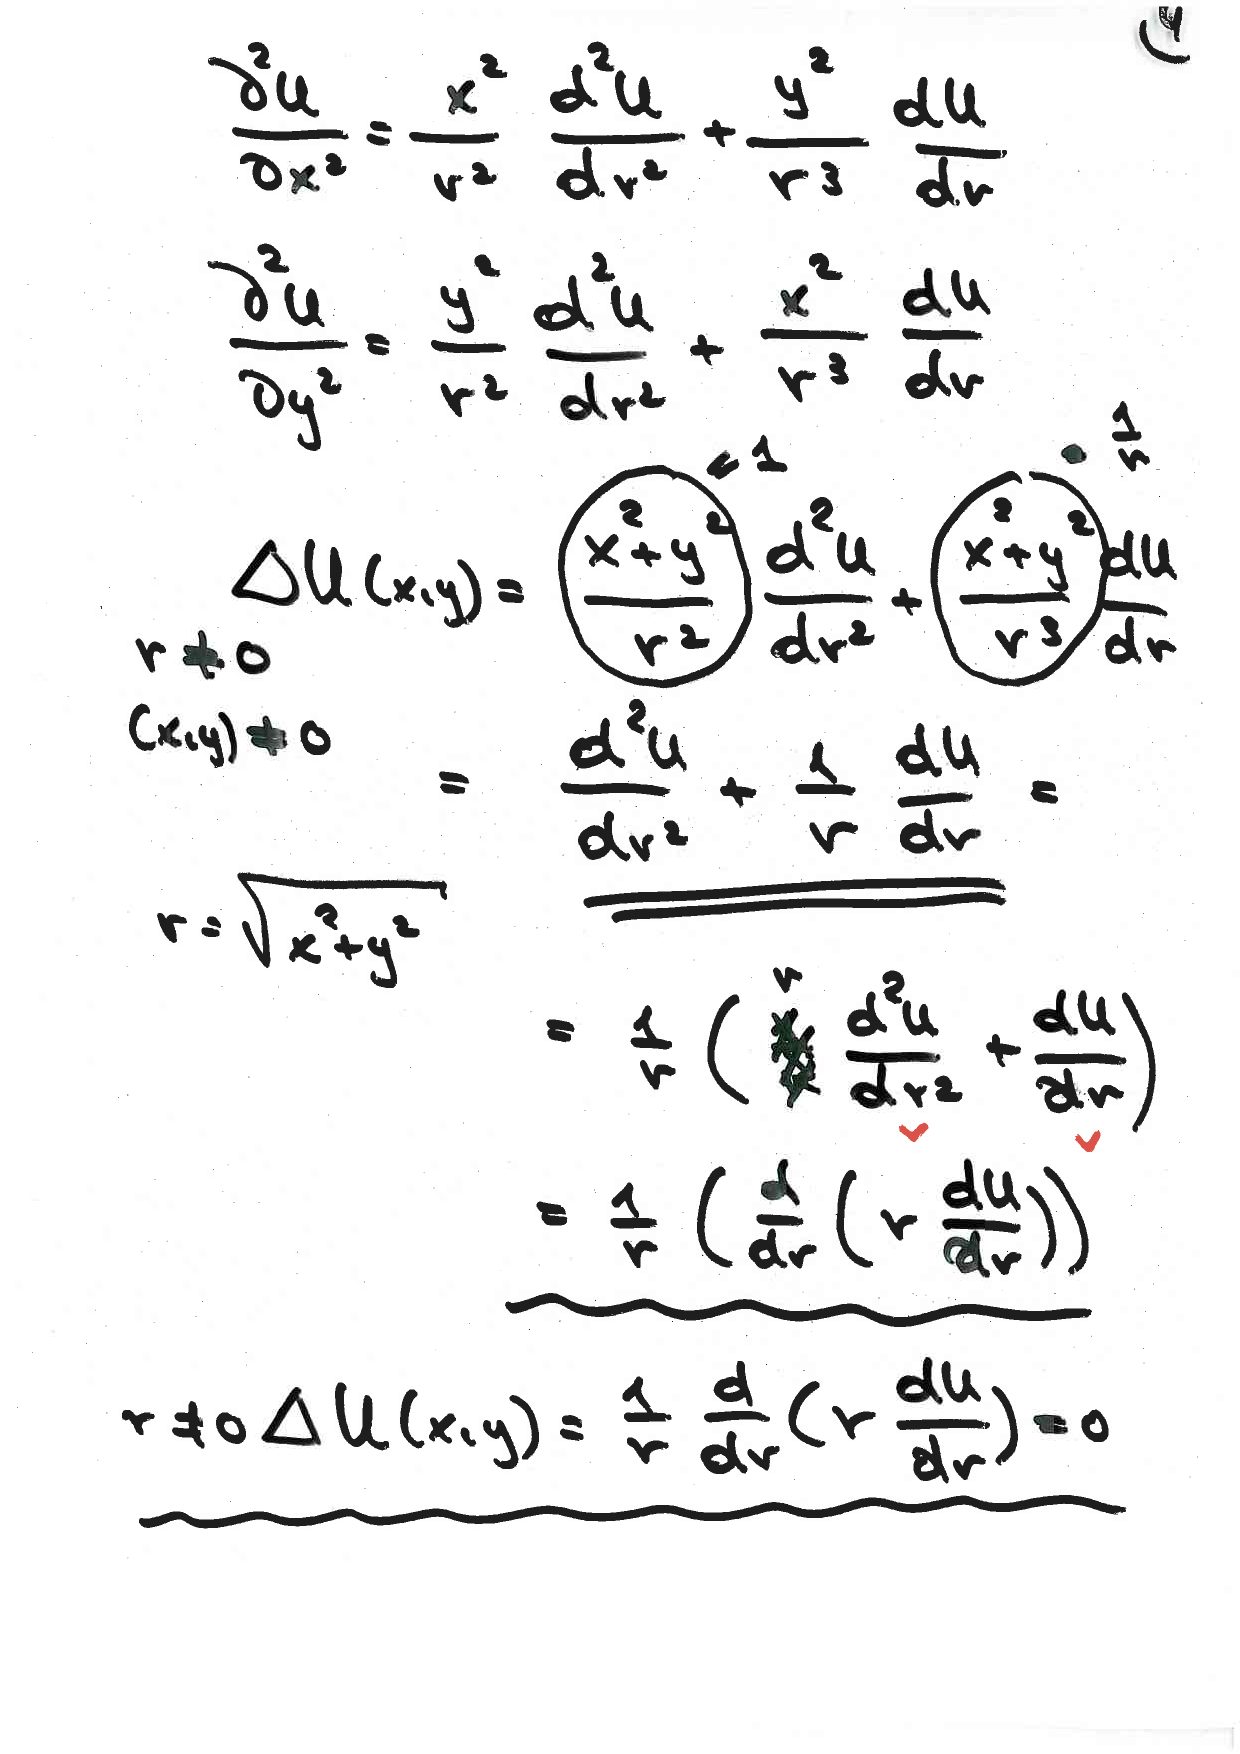 4
∂²u/∂x² = x²/r² d²u/dr² + y²/r³ du/dr
∂²u/∂y² = y²/r² d²u/dr² + x²/r³ du/dr
= 1 · 1/r
Δu(x,y) = (x²+y²)/r² d²u/dr² + (x²+y²)/r³ du/dr
r ≠ 0
(x,y) ≠ 0
= d²u/dr² + 1/r du/dr =
r = √(x²+y²)
= 1/r ( r d²u/dr² + du/dr )
= 1/r ( d/dr ( r du/dr ) )
r ≠ 0 Δu(x,y) = 1/r d/dr ( r du/dr ) = 0